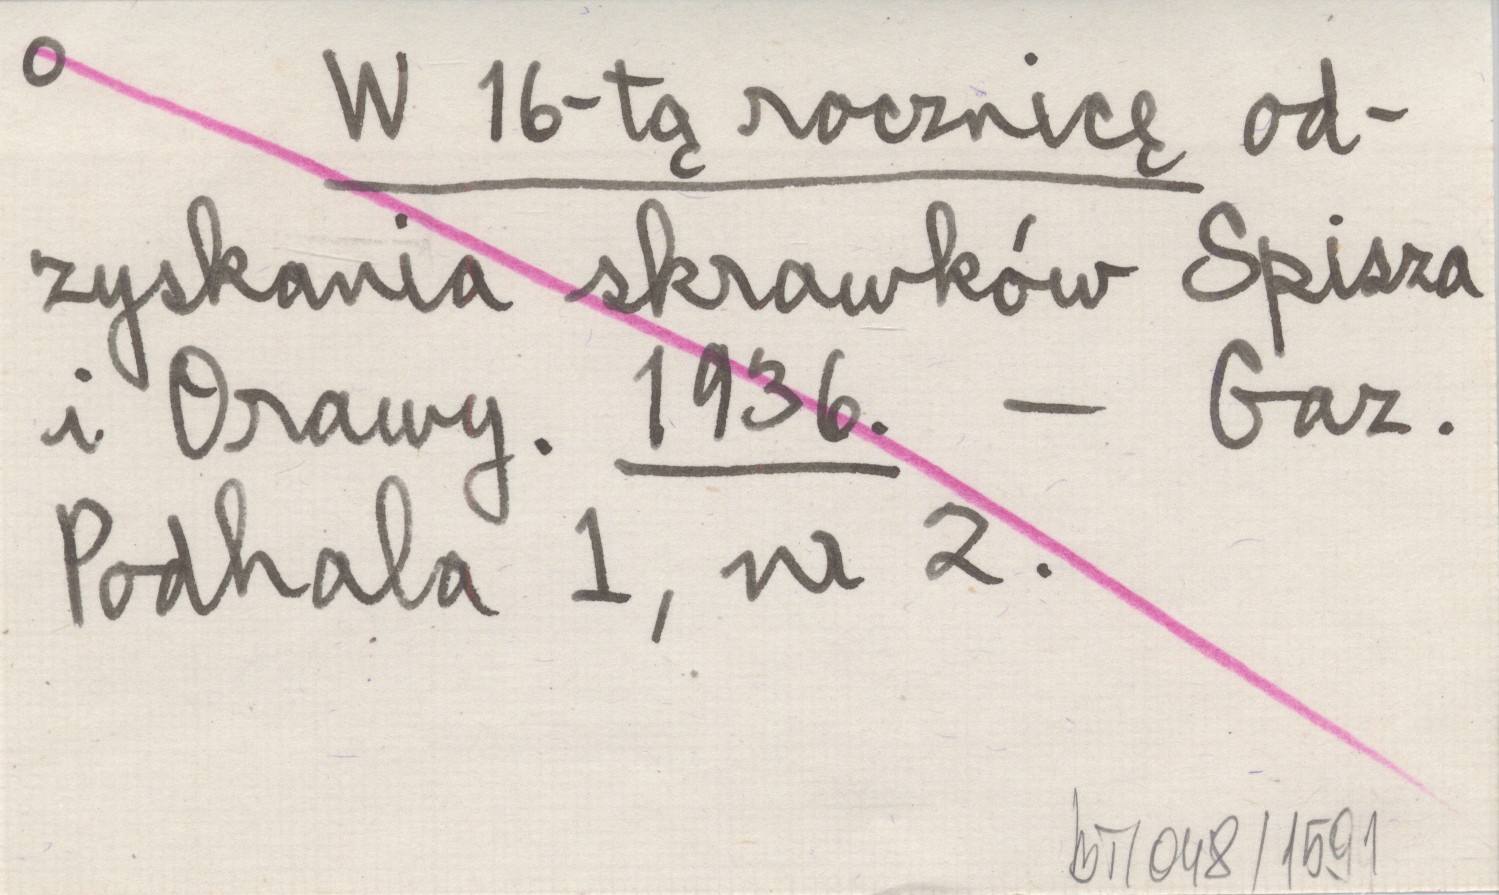 o W 16-tą rocznicę od-
zyskania skrawków Spisza
i Orawy. 1936. — Gaz.
Podhala 1, nr 2.
BT/048/1591